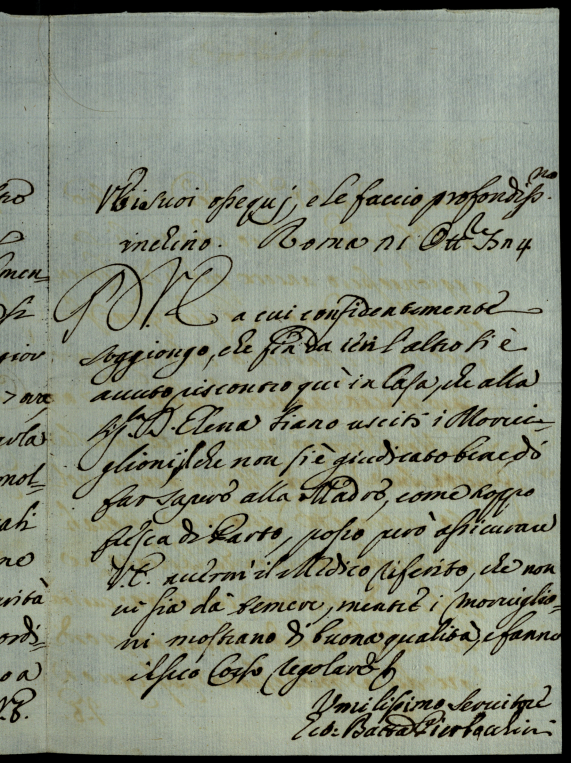 suoi ossequj, e le faccio profondiss.mo
inchino. Roma 
D. V. E. a cui confidentemente
soggiongo, che fin da ieri l'altro si è
avuto riscontro quì in Casa, che alla
Sig.ra D. Elena siano usciti i Morvi-
glioni, il che non si è giudicato bene di
far sapere alla Madre, come troppo
fresca di Parto, posso però assicurare
V. E. avermi il Medico riferito, che non
vi sia da temere, mentre i Morviglio-
ni mostrano di buona qualità, e fanno
il suo Corso regolare
Umilissimo Servitore
Batta